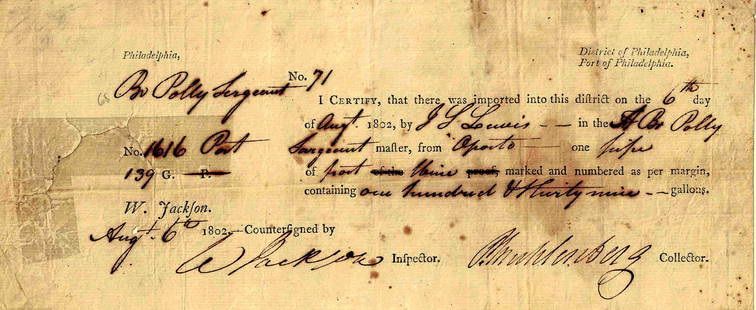 Philadelphia,
District of Philadelphia,
Port of Philadelphia.
Br Polly Sergeant
No. 71
I CERTIFY, that there was imported into this district on the 6th day
of Augt. 1802, by J S Lewis — in the A Br Polly
No. 1616 Port
Sergeant master, from Oporto — one pipe
139 G. P.
of port of the Wine proof, marked and numbered as per margin,
containing one hundred & thirty nine — gallons.
W. Jackson.
Augt. 6th 1802, Countersigned by
W Jackson Inspector.
P Muhlenberg Collector.